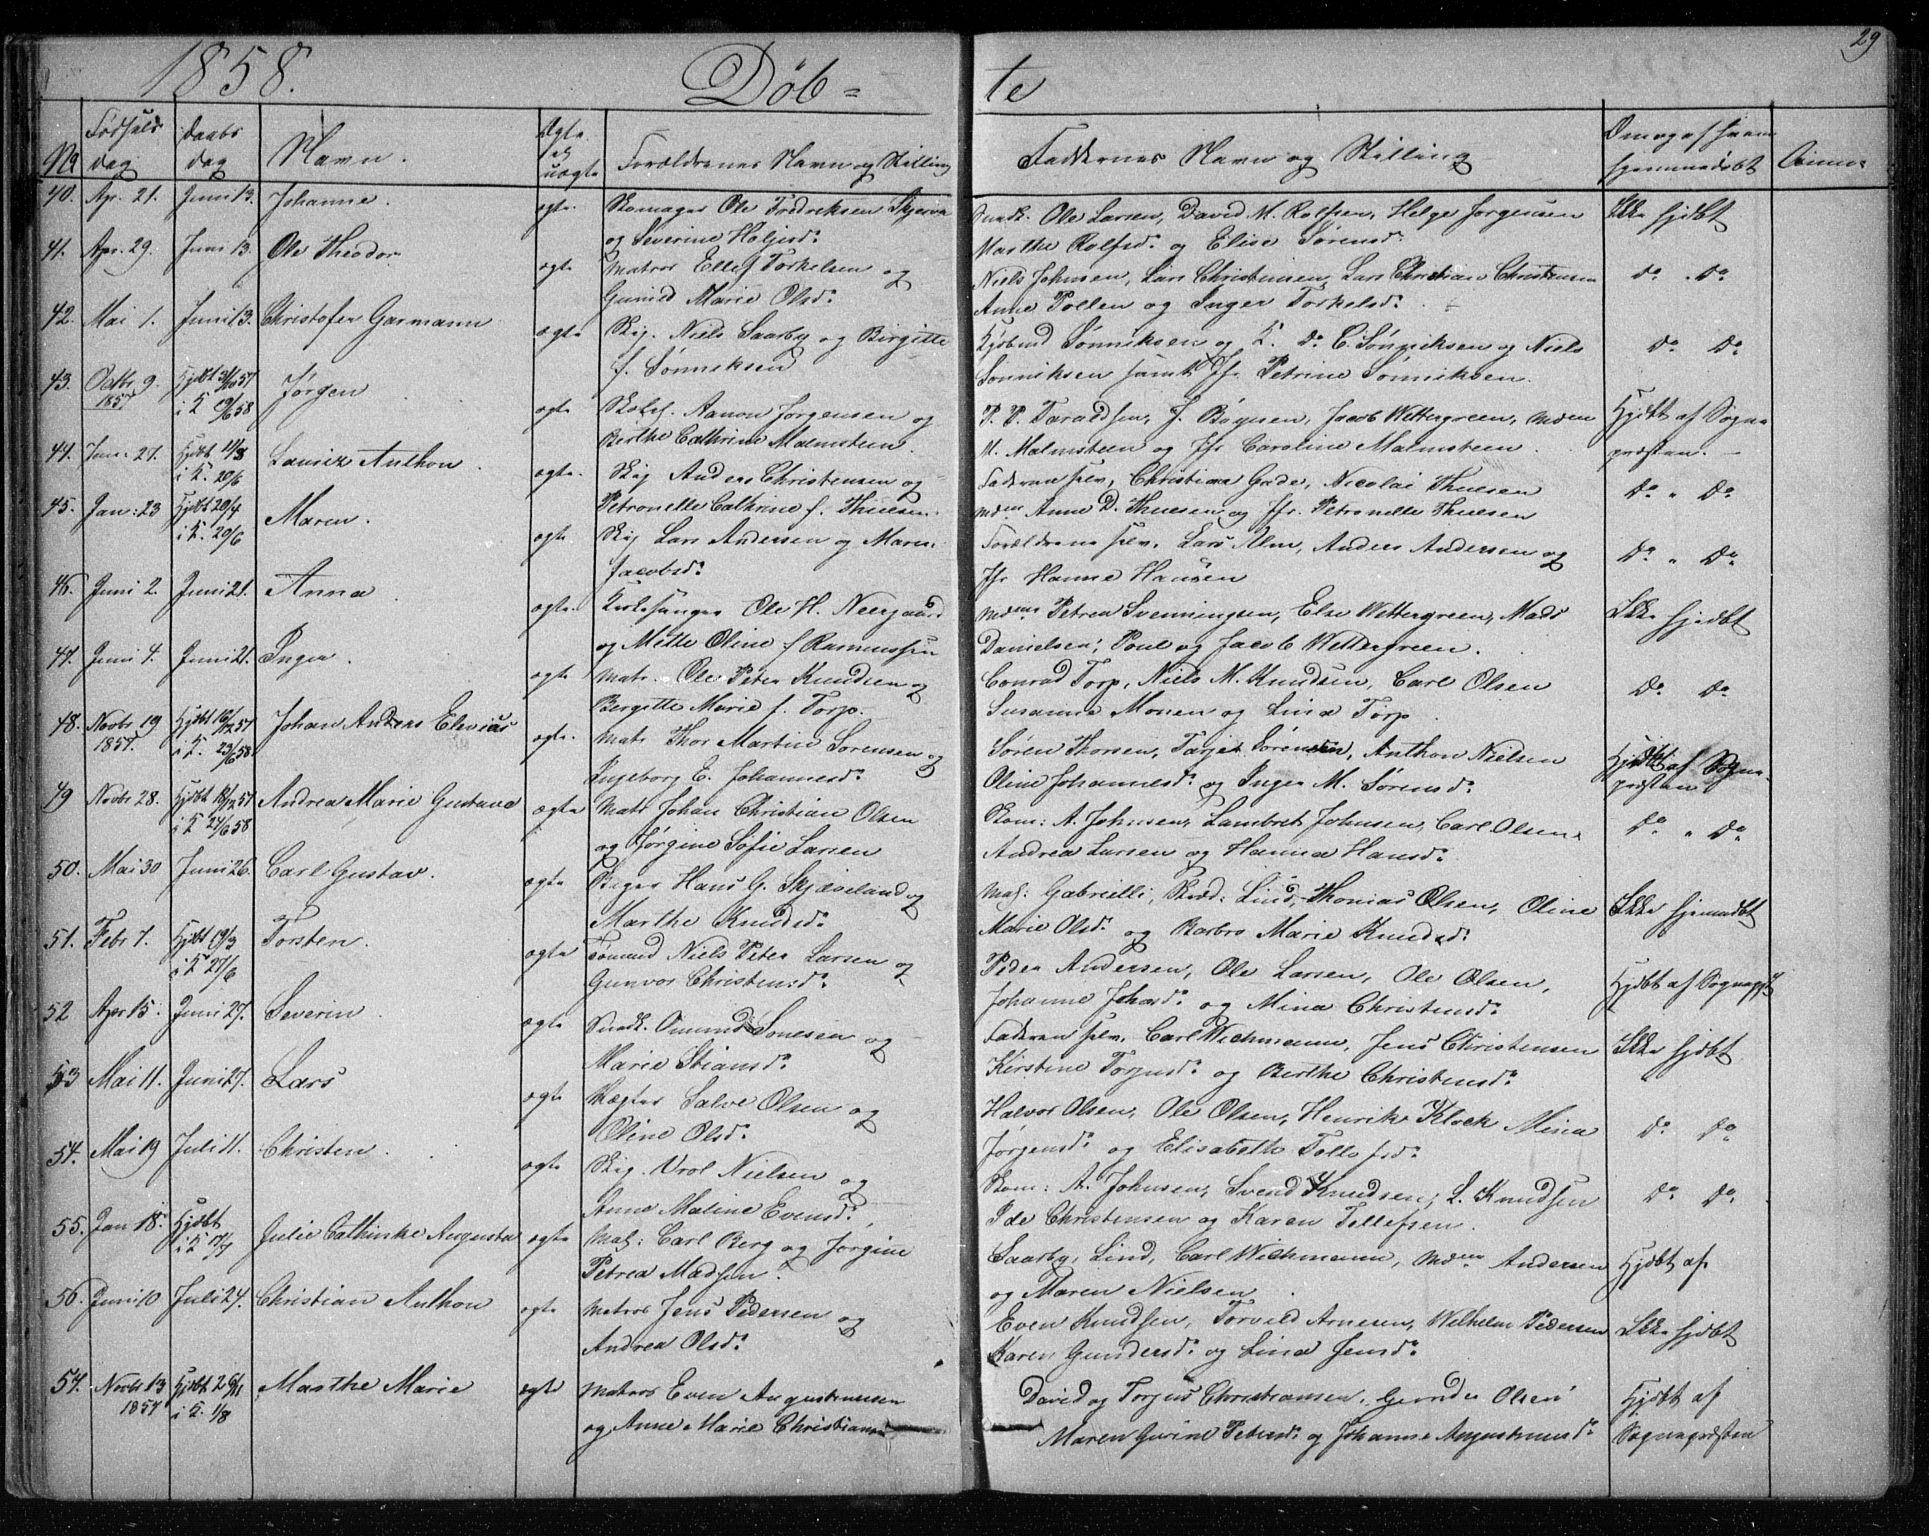 1858. Døb= te 29
No Fødsels dag Daabs dag Navn. Ægte el uægte Forældrenes Navn og Stilling Faddernes Navn og Stilling Om og af hvem hjemmedøbt
40. Apr. 21. Juni 13. Johanne. ægte. Skomager Ole Fredriksen Ole Larsen, David M. Rolfsen, Helge Jørgensen Ikke hjdbt
og Severine Marthe Rolfsd: og Elise Sørensd:
41. Apr. 29. Juni 13. Ole Theodor ægte Matros Ellef Torkelsen og Niels Johnsen, Lars Christensen, Lars Christian Christensen Do Do
Gunild Marie Olsd: Anne Pollen og Inger Torkelsd:
42. Mai 1. Juni 13. Christofer Garmann ægte Skp. Niels Saarby og Birgitte Sønniksen og C. Sønniksen og Niels Do Do
f. Sønniksen Sønniksen samt Jfr Petrine Sønniksen.
43. Octbr 9. 1857 Hjdbt 31/10 57 i K 19/6 58 Jørgen ægte Aanon Jørgensen og P. P. Taraldsen, J. Bøgesen, Jacob Wettergreen, Mdem Hjdbt af Sogne
Berthe Cathrine Malmsteen. M. Malmsteen og Jfr Caroline Malmsteen. præsten.
44. Jan: 27. Hjdbt 11/3 i K. 20/6 Lauriz Anthon ægte. Skp Anders Christensen og Faderen selv, Christiane Gude, Nicolai Thuesen Do " Do
Petronelle Cathrine f. Thuesen. Mdem Anne D. Thuesen og Jfr. Petronelle Thuesen
45. Jan: 23 Hjdbt 20/4 i K. 20/6 Maren. ægte Skp Lars Andersen og Maren Forældrene selv, Lars Alm, Anders Andersen og Do " Do
Jacobsd: Jfr Hanne Hansen
46. Juni 2. Juni 21. Anna ægte. Kirkesanger Ole H. Neergaard Mdem Petrea Svenningsen, Else Wettergreen, Mads Ikke hjdbt
og Mette Oline f Rasmussen Danielsen, Poul og Jacob Wettergreen.
47. Juni 4. Juni 21. Inger. ægte Matr. Ole Peter Knudsen og Conrad Torp, Niels M. Knudsen, Carl Olsen Do Do
Bergitte Marie f. Torp. Susanne Monen og Lina Torp.
48. Novbr 19 1857. Hjdbt 16/12 57 i K. 23/6 58 Johan Andreas Elevius ægte. Matr Thor Martin Sørensen og Søren Thorsen, Tarjer Sørensen, Anthon Nielsen Hjdbt af Sogne
Ingeborg E. Johannesd: Oline Johannesd: og Inger M. Sørensd: præsten
49 Novbr 28. Hjdbt 18/12 57 i K 24/6 58 Andrea Marie Gustava ægte Matr Johan Christian Olsen Skom: A. Johnsen, Lambret Johnsen, Carl Olsen Do " Do
og Jørgine Sofie Larsen Andrea Larsen og Hanna Hansd:
50. Mai 30 Juni 26. Carl Gustav. ægte Bager Hans G. Skjæseland og Mal: Gabrielli, Skræd: Lind, Thomas Olsen, Oline Ikke hjemmedbt
Marthe Knudsd: Marie Olsd: og Barbro Marie Knudsd:
51. Febr 7. Hjdbt 19/3 i K 27/6 Torsten. ægte Tømmd Niels Peter Larsen og Peder Andersen, Ole Larsen, Ole Olsen, Hjdbt af Sognepr
Gunvor Christensd: Johanne Johansd: og Mina Christensd:
52 Apr 15. Juni 27. Severin ægte Snedk. Omund Sonesen og Faderen selv, Carl Wichmann, Jens Christensen Ikke hjdbt
Marie Stiansd: Kirstine Torjusd: og Berthe Christensd:
53 Mai 11. Juni 27. Lars ægte Vægter Salve Olsen og Halvor Olsen, Ole Olsen, Henrik Klock Mina Do Do
Oline Olsd: Jørgensd: og Elisabeth Tollefsd:
54. Mai 19 Juli 11. Christen ægte Skp. Vrol Nielsen og Skom: A. Johnsen, Svend Knudsen, L. Knudsen Do Do
Anne Maline Evensd: Ide Christensen og Karen Tellefsen.
55. Jan 18. Hjdbt i K 17/7 Julie Cathinke Augusta ægte Mal: Carl Berg og Jørgine Saarby, Lind, Carl Wichmann, Mdem Andersen Hjdbt af
Petrea Madsen og Maren Nielsen.
56. Juni 10 Juli 24. Christian Anthon ægte Matros Jens Pedersen og Even Knudsen, Torvild Arnesen, Wilhelm Pedersen Ikke hjdbt
Andrea Olsd: Karen Gundersd: og Lina Jensd:
57. Novbr 13 1857 Hjdbt 29/11 i K. 1/8 Marthe Marie ægte Matros Even Augustinusen David og Torjus Christiansen, Olsen Hjdbt af
og Anne Marie Christians Maren Gurine Petersd: og Johanne Augustinusd: Sognepræsten